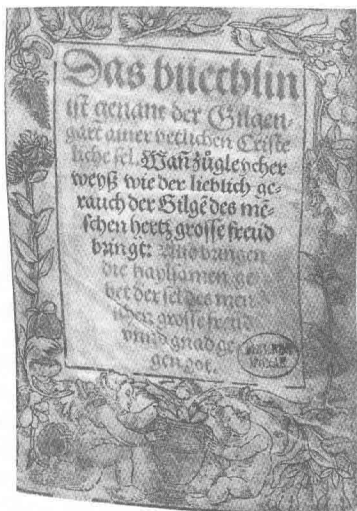 Das büechlin
ist genant der Gilgen-
gart ainer yetlichen Criste
liche sel. Wañ zů gleycher
weyß wie der lieblich ge-
rauch der Gilgē des mē-
schen hertz grosse freud
bringt: Also bringen
die haylsamen ge
bet der sel des men
schen grosse freud
vnnd gnad ge-
gen got.